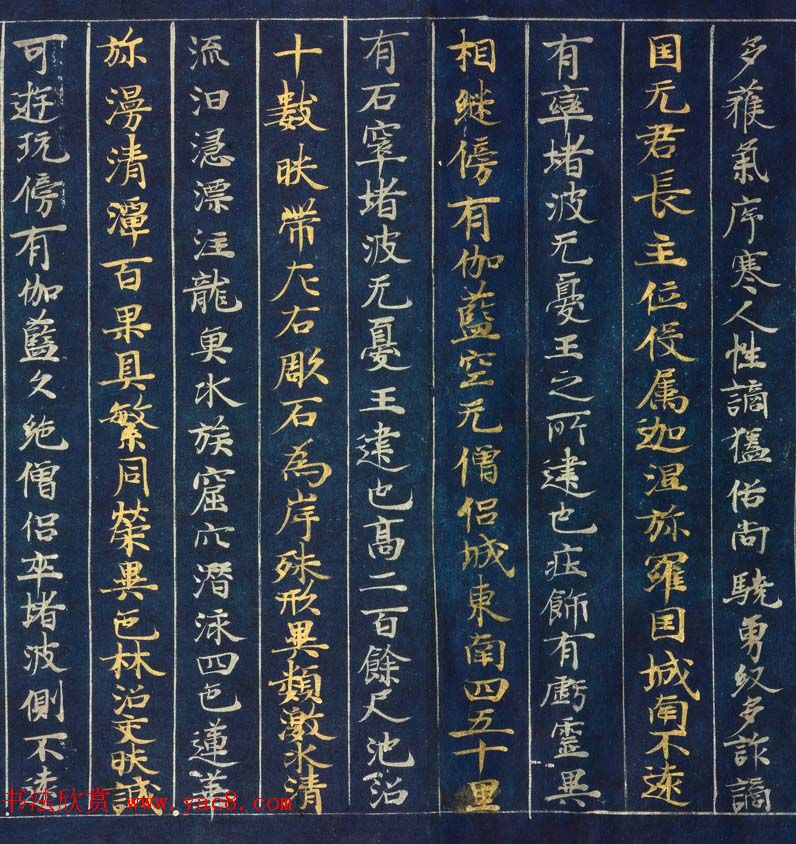 多獲氣序寒人性譎猛俗尚驍勇紁多詐譎
国无君長主位役属迦湿弥羅国城南不遠
有窣堵波无憂王之所建也庄飾有虧霊異
相継傍有伽藍空无僧侶城東南四五十里
有石窣堵波无憂王建也高二百餘尺池沼
十數映帶左右彫石為岸殊形異類激水清
流汩漂注龍魚水族窟穴潜泳四色蓮華
弥漫清潭百果具繁同榮異色林沼交映誠
可遊玩傍有伽藍久絶僧侶窣堵波側不遠
书法欣赏 www.yac8.com